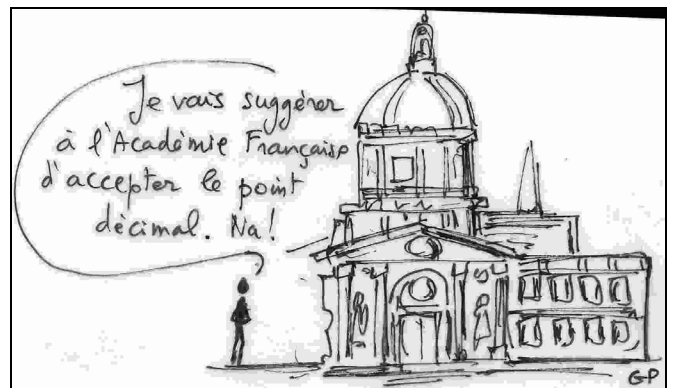 Je vais suggérer
à l'Académie Française
d'accepter le point
décimal. Na!
GP